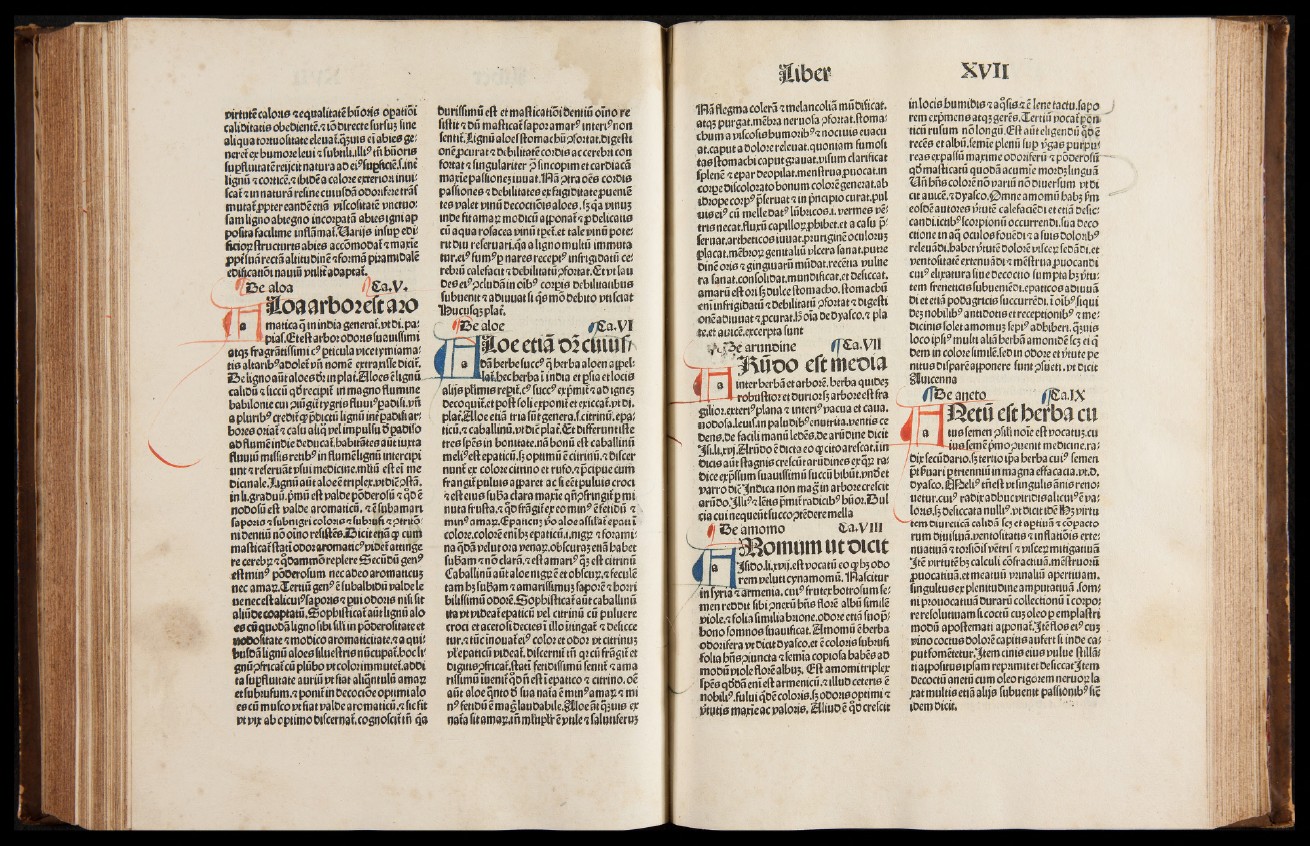 virtutē caloris ⁊ equalitatē hūoris opatiōi
caliditatis obedientē. ⁊ iō directe sursuȝ sine
aliqua tortuositate eleuat̄. qȝuis ei abies ge-
neret̄ ex humore leui ⁊ subtili. illiꝰ tñ hūoris
supfluitatē reijcit natura ad eiꝰ supficiē. s. in
lignū ⁊ corticē. ⁊ ibidē a calore exteriori inui-
scat̄ ⁊ in naturā resine cuiusdā odorifere trās
mutat̄. ppter eandē etiā viscositatē vnctuo-
sam ligno abiegno incorpatā abies igni ap
posita facilime inflāmat̄. Uarijs insup edi-
ficioꝝ structuris abies accōmodat̄ ⁊ maxie
ppt̄ suā rectā altitudinē ⁊ formā piramidalē
edificatiōi nauiū vtilit̄ adaptat̄.
De aloa Ca. V.
Aloa arbor est aro
matica q̄ in india generat̄. vt di. pa-
pias. Et est arbor odoris suauissimi
atqȝ fragrātissimi cꝰ pticula vice tymiama-
tis altaribꝰ adolet̄ vn̄ nomē extraxisse dicit̄.
De ligno aūt aloes dr̄ in plat. Aloes ē lignū
calidū ⁊ siccū qd̄ recipit̄ in magno flumine
babilonie cui ꝯiūgit̄ tygris fluuiꝰ padisi. vn̄
a pluribꝰ credit̄ ꝙ p̄dictū lignū int̄ padisi ar-
bores oriat̄ ⁊ casu aliq̄ vel impulsu d̓ padiso
ad flumē indie deducat̄. habitātes aūt iuxta
fluuiū missis retibꝰ in flumē lignū intercipi
unt ⁊ referuāt vsui medicine. mltū est ei me
dicinale. Lignū aūt aloe ē triplex. vt dic̄ ꝯst̄ā.
in li. graduū. p̄mū est valde pōderosū ⁊ qd̄ ē
nodosū est valde aromaticū, ⁊ ē subamari
saporis ⁊ subnigri coloris ⁊ subrufi
ni dentiū nō oīno resistēs. Dicit etiā ꝙ cum
masticat̄ statī odor aromaticꝰ videt̄ attinge
re cerebꝝ ⁊ q̄dāmmō replere Secūdū genꝰ
est minꝰ pōderosum nec adeo aromaticuȝ
nec amaꝝ. Tertiū genꝰ ē subalbidū valde le
ue nec est alicuiꝰ saporis ⁊ pui odoris nisi sit
aliūde coaptatū. Sophisticat̄ aūt lignū alo
es cū quodā ligno sibi sili in pōderositate et
nodositate ⁊ modico aromaticitate. ⁊ a qui-
busdā lignū aloes siluestris nūcupat̄. hoc li-
gnū ꝯfricat̄ cū plūbo vt color immutet̄. addi
ta supfluitate auriū vt fiat aliq̄ntulū amaꝝ
et subrufum. ⁊ ponit̄ in decocōe optimi alo
es cū musco vt fiat valde aromaticū, ⁊ sic fit
vt vix ab optimo discernat̄. cognoscit̄ tñ qȝ
durissimū est et masticatiōi dentiū oīno re
sistit ⁊ dū masticat̄ sapor amarꝰ interiꝰ non
sentit̄. Lignū aloes stomachū ꝯfortat. digesti
onē pcurat ⁊ debilitatē cordis ac cerebri con
fortat ⁊ singulariter ꝯ sincopim et cardiacā
maxie passioneȝ iuuat. Nā ꝯtra oēs cordis
passiones ⁊ debilitates ex frigiditate pueniē
tes valet vinū decoctiōis aloes. sȝ qȝ vinuȝ
inde fit amaꝝ modicū apponat̄ ꝓ delicatis
cū aqua rosacea vinū tꝑet̄. et tale vinū pote-
rit diu reseruari. qȝ a ligno multū immuta
tur. eiꝰ fumꝰ ꝑ nares receptꝰ infrigidatū ce-
rebrū calefacit ⁊ debilitatū ꝯfortat. Et vt lau
des eiꝰ ꝯcludā in oībꝰ corpis debilitatibus
subuenit ⁊ adiuuat si q̄s mō debito vti sciat
Hucusqȝ plat.
De aloe Ca. VI
Aloe etiā dr̄ cuius-
dā herbe succꝰ q̄ herba aloen appel-
lat̄. hec herba ī india et psia et locis
alijs plimis repit̄. cꝰ succꝰ exp̄mit̄ ⁊ ad igneȝ
decoquit̄. et post soli exponit̄ et exiccat̄. vt di.
plat. Aloe etiā tria sūt genera. s. citrinū, epa-
ticū, ⁊ caballinū. vt dic̄ plat. Et differunt iste
tres spēs in bonitate. nā bonū est caballinū
meliꝰ est epaticū. sȝ optimū ē citrinū. ⁊ discer
nunt̄ ex colore citrino et rufo. ⁊ p̄cipue cum
frangit̄ puluis apparet ac si eēt puluis croci
⁊ est eius suba clara maxie qn̄ ꝯfringit̄ ꝑ mi
nuta frusta. ⁊ qd̄ frāgit̄ ex eo minꝰ ē fetidū ⁊
minꝰ amaꝝ. Epaticuȝ ꝟo aloe assilat̄ epati ī
colore. colorē eni hȝ epaticū. i. nigꝝ ⁊ forami-
na q̄dā velut ora venaꝝ. obscuraȝ etiā habet
subam ⁊ nō clarā. ⁊ est amariꝰ qȝ est citrinū
Caballinū aūt aloe nigꝝ ē et obscuꝝ. ⁊ feculē
tam hȝ subam ⁊ amarissimuȝ saporē ⁊ horri
bilissimū odorē. Sophisticat̄ aūt caballinū
ita vt videat̄ epaticū vel citrinū cū puluere
croci et aceto si decies ī illo itingat̄ ⁊ desicce
tur. ⁊ tūc inouat̄ eiꝰ color et odor vt citrinuȝ
vl̓ epaticū videat̄. discernit̄ tñ qȝ cū frāgit̄ et
digitis ꝯfricat̄. statī fetidissimū sentit̄ ⁊ ama
rissimū inenit̄ qd̄ nō est ī epatico ⁊ citrino. oē
aūt aloe q̄nto d̓ sua nat̄a ē minꝰ amaꝝ ⁊ mi
nꝰ fetidū ē mag̓ laudabile. Aloe āt qȝuis ex
nat̄a sit amaꝝ. tñ mltiplr̄ ē vtile ⁊ salutiferuȝ
Liber XVII
Nā flegma colerā ⁊ melancoliā mūdificat.
atqȝ purgat. mēbra neruosa ꝯfortat. stoma-
chum a viscosis humoribꝰ ⁊ nociuis euacu
at. caput a dolore releuat. quoniam fumosi
tas stomachi caput grauat. visum clarificat
splenē ⁊ epar deopilat. menstrua ꝓuocat. in
corpe discolorato bonum colorē generat. ab
idrope corpꝰ p̄seruat ⁊ in p̄ncipio curat. pul
uis eiꝰ cū melle datꝰ lūbricos. i. vermes vē-
tris necat. fluxū capilloꝝ ꝓhibet. et a casu p̄-
seruat. artheticos iuuat. pruriginē oculoruȝ
placat. mēbroꝝ genitaliū vlcera sanat. putre
dinē oris ⁊ gingiuarū mūdat. recētia vulne
ra sanat. consolidat. mundificat. et desiccat.
amarū est ori sȝ dulce stomacho. stomachū
eni infrigidatū ⁊ debilitatū ꝯfortat ⁊ digesti
onē adiuuat ⁊ pcurat. h̓ oīa de dyasco. ⁊ pla
te. et auicē. excerpta sunt
De arundine Ca. VII
Arūdo est media
inter herbā et arborē. herba quideȝ
robustior et durior sȝ arbore est fra
gilior. exteriꝰ plana ⁊ interiꝰ vacua et caua.
nodosa. leuis. in paludibꝰ enutrita. ventis ce
dens. de facili manū ledēs. de arūdine dicit
Isi. li. xvj. Arūdo ē dicta eo ꝙ cito arescat. in
dicis aūt stagnis crescūt arūdines ex qȝꝝ ra-
dice exp̄ssum suauissimū succū bibūt. vnd̓ et
varro dic̄ Indica non mag̓ in arbore crescit
arūdo. Illiꝰ ⁊ lētis p̄mit̄ radicibꝰ hūor. Dul
cia cui nequeūt succo ꝯtēdere mella
De amomo Ca. VIII
Amomum ut dicit
Isido. li. xvij. est vocatū eo ꝙ hȝ odo
rem veluti cynamomū. Nascitur
in syria ⁊ armenia. cuiꝰ frutex botrosum se-
men reddit sibi ꝯnexū hn̄s florē albū similē
viole. ⁊ folia similia brione. odore etiā suop̄-
bono somnos suauificat. Amomū ē herba
odorifera vt dicit dyasco. et ē coloris subrufi
folia hn̄s ꝯiuncta ⁊ semia copiosa habēs ad
modū viole florē albuȝ. Est amomi triplex
spēs qd̄dā eni est armenicū. ⁊ illud ceteris ē
nobiliꝰ. fului qd̄ē coloris. sȝ odoris optimi ⁊
p̄tutis maxie ac valoris. Aliud ē qd̄ crescit
in locis humidis ⁊ aq̄sis ⁊ ē lene tactu. sapo
rem exp̄mens atqȝ gerēs. Tertiū vocat̄ pon
ticū rusum nō longū. Est aūt eligendū qd̄ ē
recēs et albū. semie plenū sup v̓gas purpu-
reas expāssū maxime odoriferū ⁊ pōderosū
qd̄ masticatū quodā acumie mordȝ linguā
Un̄ hn̄s colorē nō variū nō diuersum vt di
cit auicē. ⁊ dyasco. Omne amomū habȝ p̄m
eosdē autores v̓tutē calefaciēdi et etiā desic-
candi. ictibꝰ scorpionū occurrendi. sua deco
ctione in aq̄ oculos fouēdi ⁊ a suis doloribꝰ
releuādi. habet v̓tutē dolorē visceꝝ sedādi. et
ventositatē extenuādi ⁊ mēstrua ꝓuocandi
cuiꝰ elixatura siue decoctio sumpta hȝ v̓tu-
tem freneticis subueniēdi. epaticos adiuuā
di et etiā podagricis succurrēdi. ī oībꝰ siqui
deȝ nobilibꝰ antidotis et receptionibꝰ ⁊ me-
dicinis solet amomuȝ sepiꝰ adhiberi. qȝuis
loco ipsiꝰ multi aliā herbā amomidē sȝ et q̄
dem in colore similē. sed in odore et v̓tute pe
nitus disparē apponere sunt ꝯsueti. vt dicit
Auicenna
De aneto Ca. IX
Anetū est herba cu
ius semen ꝯsili noīe est vocatuȝ. cu
ius semē p̄mo ꝯuenit medicine. ra-
dix secūdario. sȝ tertio ip̄a herba cuiꝰ semen
pt̄ ꝯuari ꝑ trienniū in magna efficacia. vt. d.
dyasco. Meliꝰ tn̄ est vt singulis ānis reno-
uetur. cuiꝰ radix adhuc viridis alicuiꝰ ē va-
loris. sȝ desiccata nulliꝰ. vt dicit idē Hȝ v̓tu
tem diureticā calidā sȝ et aptiuā ⁊ cōpacto
rum diuisiuā. ventositatis ⁊ inflatiōis exte-
nuatiuā ⁊ torsiōis vētris ⁊ visceꝝ mitigatiuā
Itē v̓tutē hȝ calculi cōfractiuā. mēstruorū
ꝓuocatiuā. et meatuū vrinaliū apertiuam.
singultus ex plenitudine amputatiuā. som-
ni prouocatiuā durarū collectionū ī corpo-
re resolutiuam si coctū cuȝ oleo p emplastri
modū apostemati apponat̄. Itē flos eiꝰ cuȝ
vino coctus dolorē capitis aufert si inde ca-
put fomētetur. Item cinis eius vulue stillā-
ti appositus ipsam reprimit et desiccat Item
decoctū anetū cum oleo rigorem neruoꝝ la
xat multis etiā alijs subuenit passionibꝰ sic̄
idem dicit.